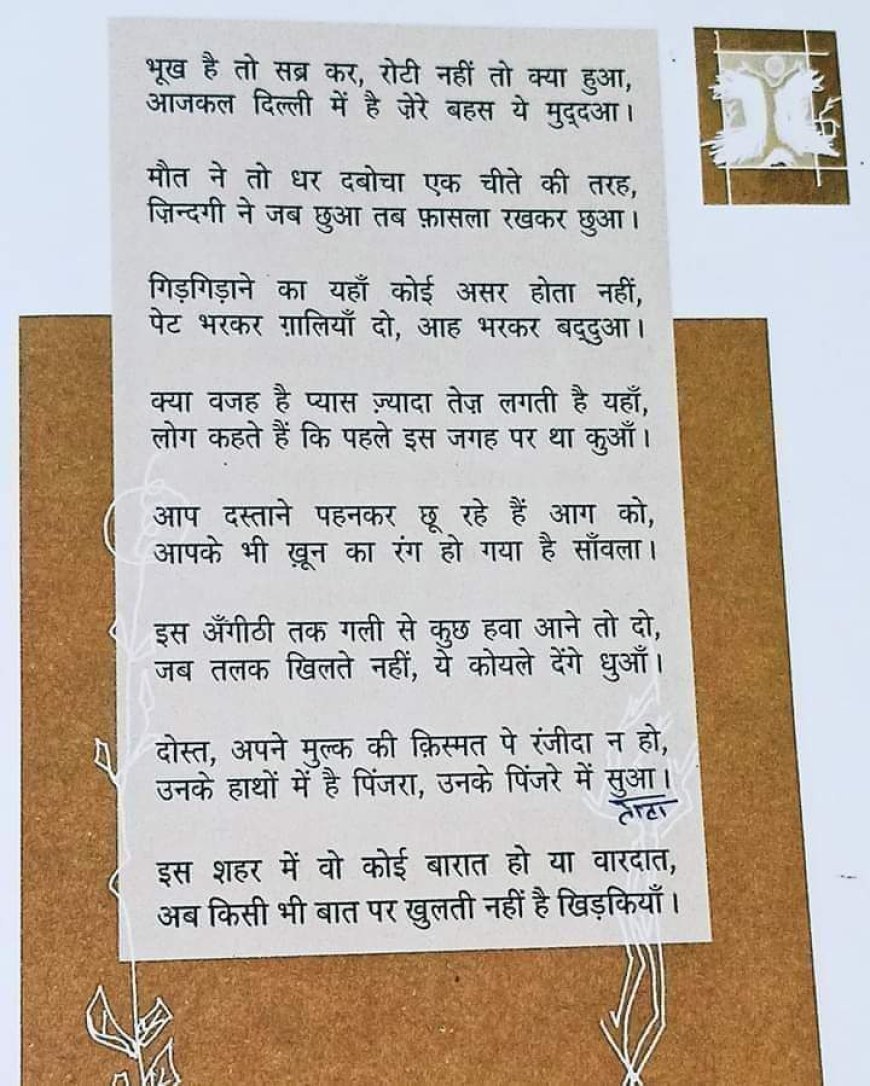 भूख है तो सब्र कर, रोटी नहीं तो क्या हुआ,
आजकल दिल्ली में है ज़ेरे बहस ये मुद्‌दआ।
मौत ने तो धर दबोचा एक चीते की तरह,
ज़िन्दगी ने जब छुआ तब फ़ासला रखकर छुआ।
गिड़गिड़ाने का यहाँ कोई असर होता नहीं,
पेट भरकर ग़ालियाँ दो, आह भरकर बद्‌दुआ।
क्या वजह है प्यास ज़्यादा तेज़ लगती है यहाँ,
लोग कहते हैं कि पहले इस जगह पर था कुआँ।
आप दस्ताने पहनकर छू रहे हैं आग को,
आपके भी ख़ून का रंग हो गया है साँवला।
इस अँगीठी तक गली से कुछ हवा आने तो दो,
जब तलक खिलते नहीं, ये कोयले देंगे धुआँ।
दोस्त, अपने मुल्क की क़िस्मत पे रंजीदा न हो,
उनके हाथों में है पिंजरा, उनके पिंजरे में सुआ।
इस शहर में वो कोई बारात हो या वारदात,
अब किसी भी बात पर खुलती नहीं है खिड़कियाँ।